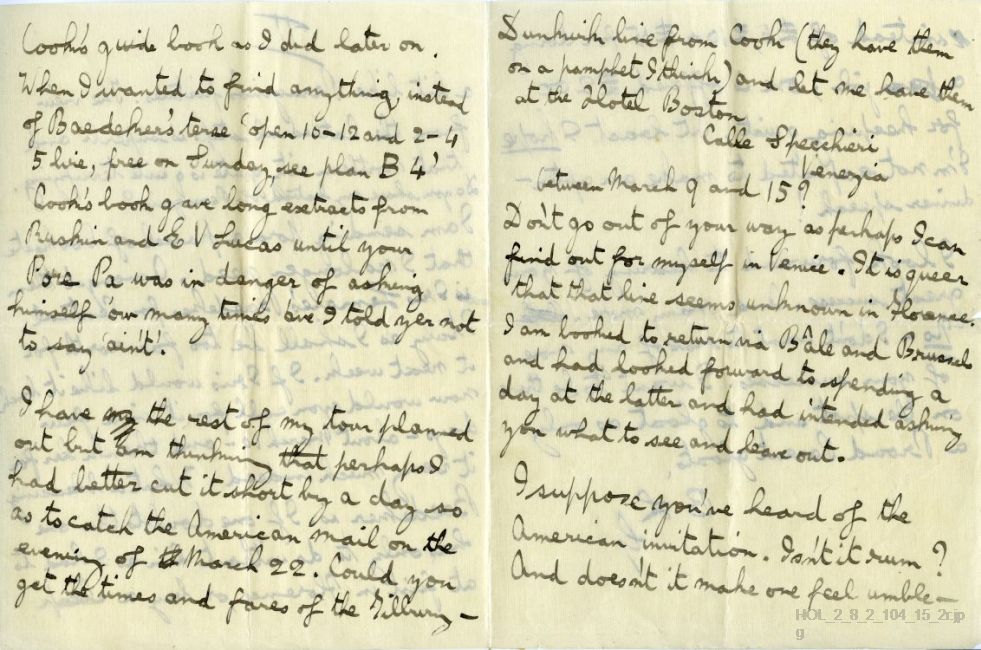 Cook's guide book as I did later on.
When I wanted to find anything, instead
of Baedeker's terse 'open 10-12 and 2-4
5 lire, free on Sunday, see plan B 4'
Cook's book gave long extracts from
Ruskin and E V Lucas until your
Pore Pa was in danger of asking
himself 'ow many times 'ave I told yer not
to say 'ain't'.
I have my the rest of my tour planned
out but am thinking that perhaps I
had better cut it short by a day so
as to catch the American mail on the
evening of March 22. Could you
get the times and fares of the Tilbury-
Dunkirk line from Cook (they have them
on a pamphlet I think) and let me have them
at the Hotel Boston
Calle Specchieri
Venezia
between March 9 and 15?
Don't go out of your way as perhaps I can
find out for myself in Venice. It is queer
that that line seems unknown in Florence.
I am booked to return via Bâle and Brussels
and had looked forward to spending a
day at the latter and had intended asking
you what to see and leave out.
I suppose you've heard of the
American invitation. Isn't it rum?
And doesn't it make one feel umble-
HOL_2_8_2_104_15_2r.jp
g